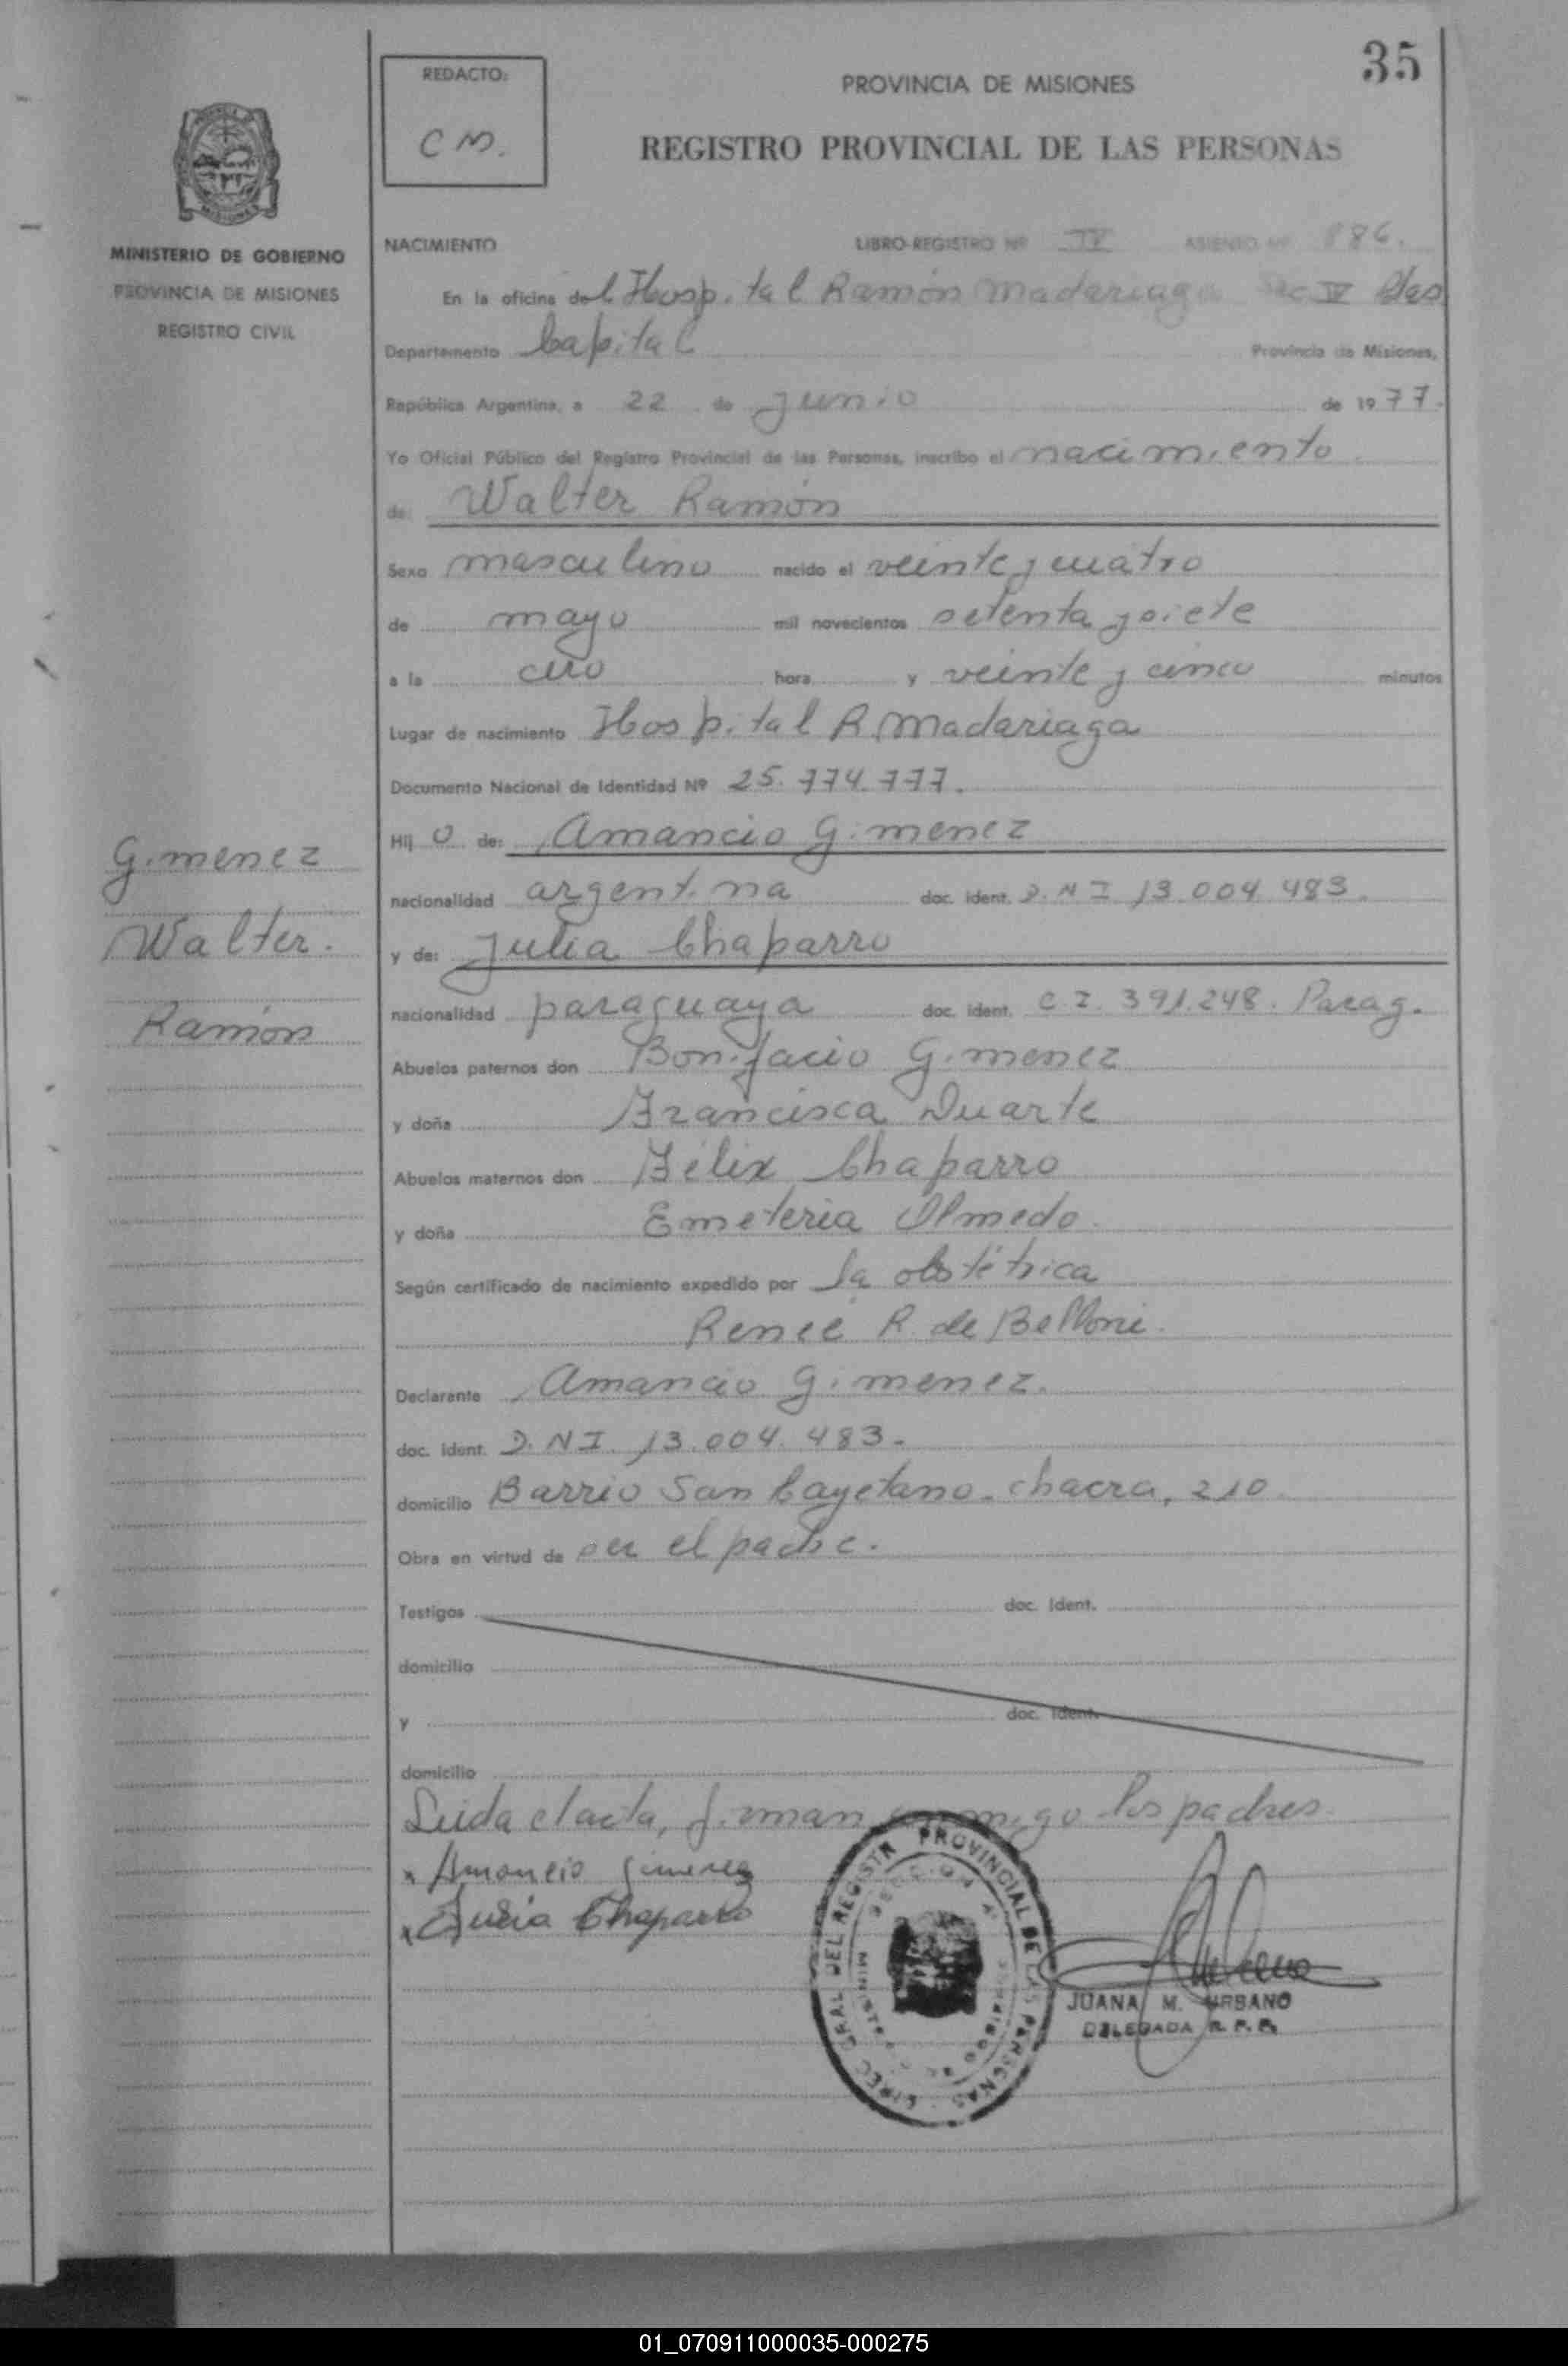 35
REDACTO:
C M.
PROVINCIA DE MISIONES
REGISTRO PROVINCIAL DE LAS PERSONAS
MISIONES
MINISTERIO DE GOBIERNO
PROVINCIA DE MISIONES
REGISTRO CIVIL
NACIMIENTO LIBRO-REGISTRO Nº IV ASIENTO Nº 886.
En la oficina del Hospital Ramón Madariaga Sec IV Pdas
Departamento Capital Provincia de Misiones,
República Argentina, a 22 de Junio de 1977.
Yo Oficial Público del Registro Provincial de las Personas, inscribo el nacimiento
de: Walter Ramón
Sexo masculino nacido el veinte y cuatro
de mayo mil novecientos setenta y siete
a la cero hora y veinte y cinco minutos
Lugar de nacimiento Hospital R. Madariaga
Documento Nacional de Identidad Nº 25.774.777.
Hij o de: Amancio Gimenez
nacionalidad argentina doc. ident. D.N.I 13.004.483.
y de: Julia Chaparro
nacionalidad paraguaya doc. ident. C.I. 391.248. Parag.
Abuelos paternos don Bonifacio Gimenez
y doña Francisca Duarte
Abuelos maternos don Félix Chaparro
y doña Emeteria Olmedo.
Según certificado de nacimiento expedido por la obstétrica
Reneé R. de Belloni.
Declarante Amancio Gimenez.
doc. ident. D.N.I. 13.004.483.
domicilio Barrio San Cayetano. chacra, 210.
Obra en virtud de ser el padre.
Testigos doc. ident.
domicilio
y doc. ident.
domicilio
Leida el acta, firman conmigo los padres.
x Amancio Gimenez
x Julia Chaparro
Gimenez
Walter.
Ramón
DIREC. GRAL. DEL REGISTR. PROVINCIAL DE LAS PERSONAS
JUANA M. URBANO
DELEGADA R. P. P.
01_070911000035-000275